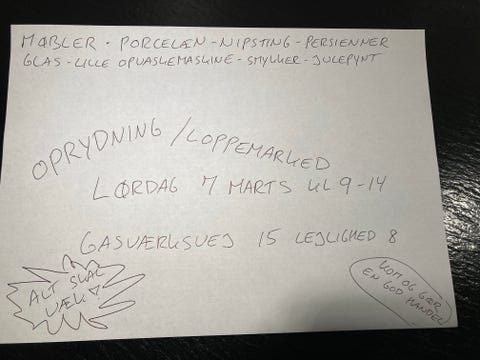 MØBLER - PORCELÆN - NIPSTING - PERSIENNER
GLAS - LILLE OPVASKEMASKINE - SMYKKER - JULEPYNT
OPRYDNING / LOPPEMARKED
LØRDAG 7 MARTS KL 9-14
GASVÆRKSVEJ 15 LEJLIGHED 8
ALT SKAL
VÆK
KOM OG GØR
EN GOD HANDEL